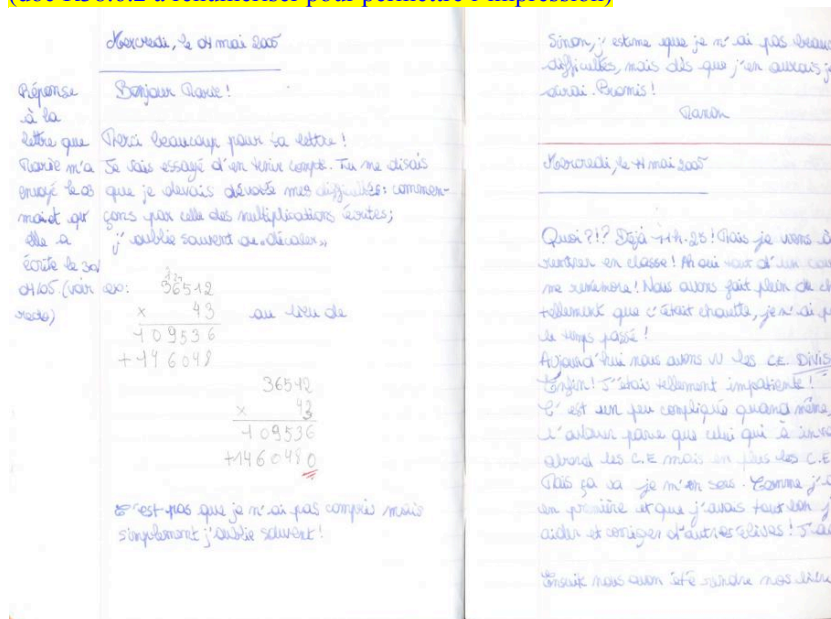 (doc A36.0.2 à renumériser pour permettre l'impression)
Mercredi, le 04 mai 2005
Réponse
à la
lettre que
Marie m'a
envoyé le 03
mai et qu'
elle a
écrite le 30/
04/05 (voir
recto)
Bonjour Marie!
Merci beaucoup pour ta lettre!
Je vais essayé d'en tenir compte. Tu me disais
que je devais mes difficultés: commen-
çons par celle des multiplications écrites;
j'oublie souvent de "décaler"
ex:
36512
x 43
109536
+146048
au lieu de
36512
x 43
109536
+1460480
C'est pas que je n'ai pas compris mais
simplement j'oublie souvent!
Sinon, j'estime que je n'ai pas beauc
difficultés, mais dès que j'en aurais je
dirai. Promis!
Manon
Mercredi, le 11 mai 2005
Quoi?!? Déjà 11h.25! Mais je viens d
rentrer en classe! Ah oui tout d'un cou
me remémore! Nous avons fait plein de ch
tellement que c'était chouette, je n'ai p
le temps passé!
Aujourd'hui nous avons vu les C.E. DIVIS
Enfin! J'étais tellement impatiente!
C'est un peu compliqué quand même,
parce que celui qui à inve
abord les C.E mais en plus les C.E
Mais ça va je m'en sors. Comme j'é
en première et que j'avais tout bon j
aider et corriger d'autres élèves! J'ai
Ensuite nous avon été rendre nos livre